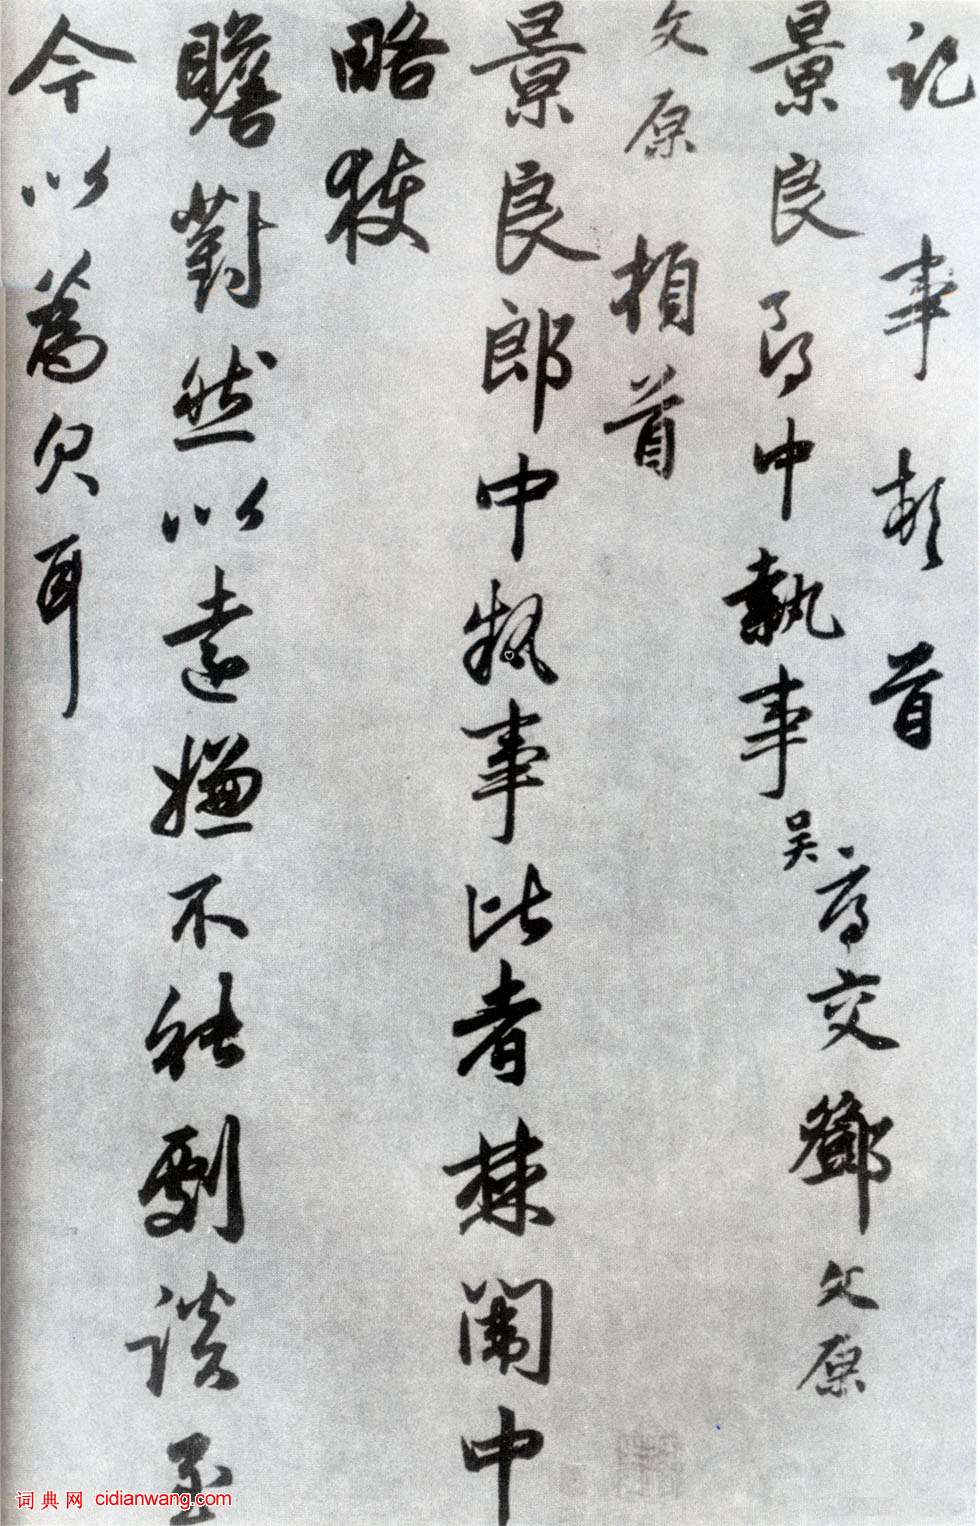 記事頓首
景良郎中執事吳有交鄧文原
文原頓首
景良郎中執事比者棘闈中
略獲
瞻對然以遠嫌不能劇談至
今以為欠耳
词典网 cidianwang.com